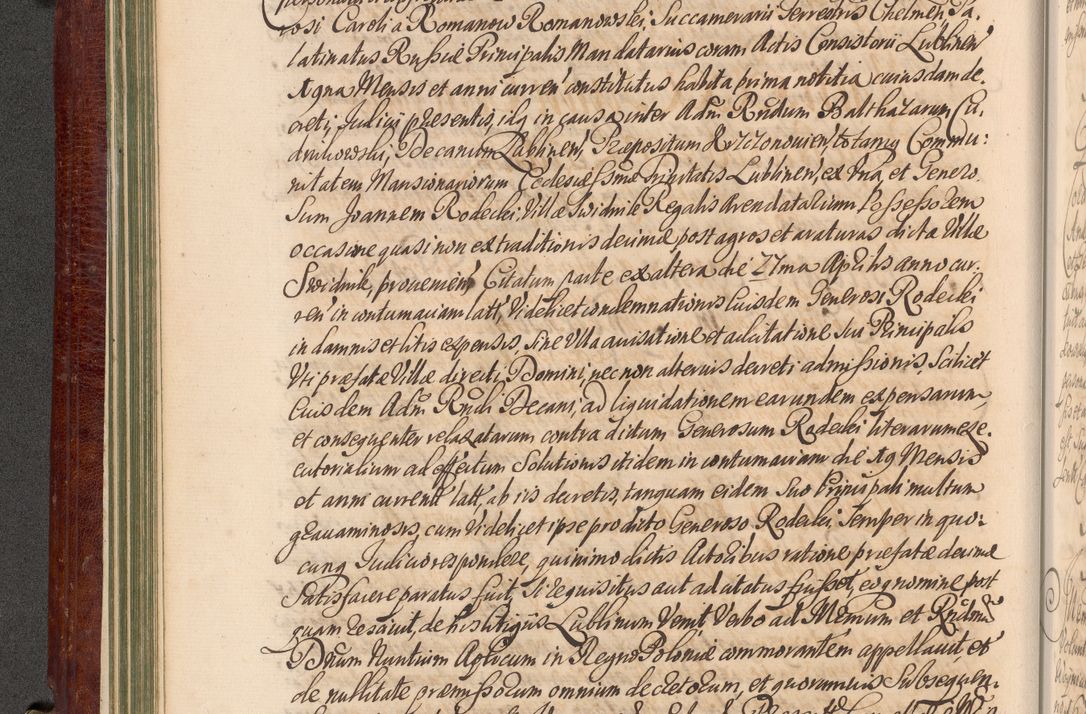 rosi Caroli a Romanow Romanowski, Succamerarii Terrestris Chelmen, Pa-
latinatus Russiæ Principalis Mandatarius coram Actis Consistorii Lublinen
19na Mensis et anni curren constitutus habita prima notitia cuiusdam de-
creti, Judicii præsentis, idq in causa inter Adm Rndum Balthazarum Cu-
drikowski, Decanum Lublinen, Præpositum Krzczonovien totamq Commu:
nitatem Mansionariorum Ecclesiæ SSmæ Trinitatis Lublinen, ex Una, et Genero-
sum Joannem Rodecki, Villæ Swidnik Regalis Arendatarium Possessorem
occasione quasi non extraditionis decimæ post agros et araturas dictæ Villæ
Swidnik, provenien Citatum parte ex altera die 27ma Aprilis anno cur-
ren in contumaciam latt, Videlicet condemnationis Eiusdem Generosi Rodecki
in damnis et litis expensis, sine Ulla avisatione et adcitatione sui Principalis
Uti præfatæ Villæ directi Domini, nec non alterius decreti admissionis, Scilicet
Eiusdem Adm Rndi Decani, ad liquidationem earundem expensarum,
et consequenter relaxatarum contra dictum Generosum Rodecki literarum exe-
cutorialium ad effectum Solutionis itidem in contumaciam die 19 Mensis
et anni curren latt, ab iis decretis, tanquam eidem suo Principali multum
gravaminosis, cum Videlicet ipse pro dicto Generoso Rodecki semper in quo-
cunq Judicio respondere, quinimo dictis Actoribus ratione præfatæ decimæ
Satisfacere paratus fuit, si requisitus aut adcitatus fuisset, eo q nomine post
quam rescivit, de his litigiis Lublinum Venit Verbo ad Illmum et Rndmum
Dnum Nuntium Aplicum in Regno Poloniæ commorantem appellavit, et
de nullitate præmissorum omnium decretorum, et quorumvis Subsequen-